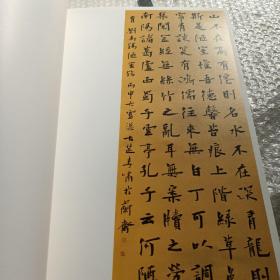 山不在高有僊則名水不在深有龍則
斯是陋室惟吾德馨苔痕上階綠草色
青談笑有鴻儒往來無白丁可以調
琴閱金經無絲竹之亂耳無案牘之勞
南陽諸葛廬西蜀子雲亭孔子云何陋
有 劉禹錫陋室銘 丙申大雪